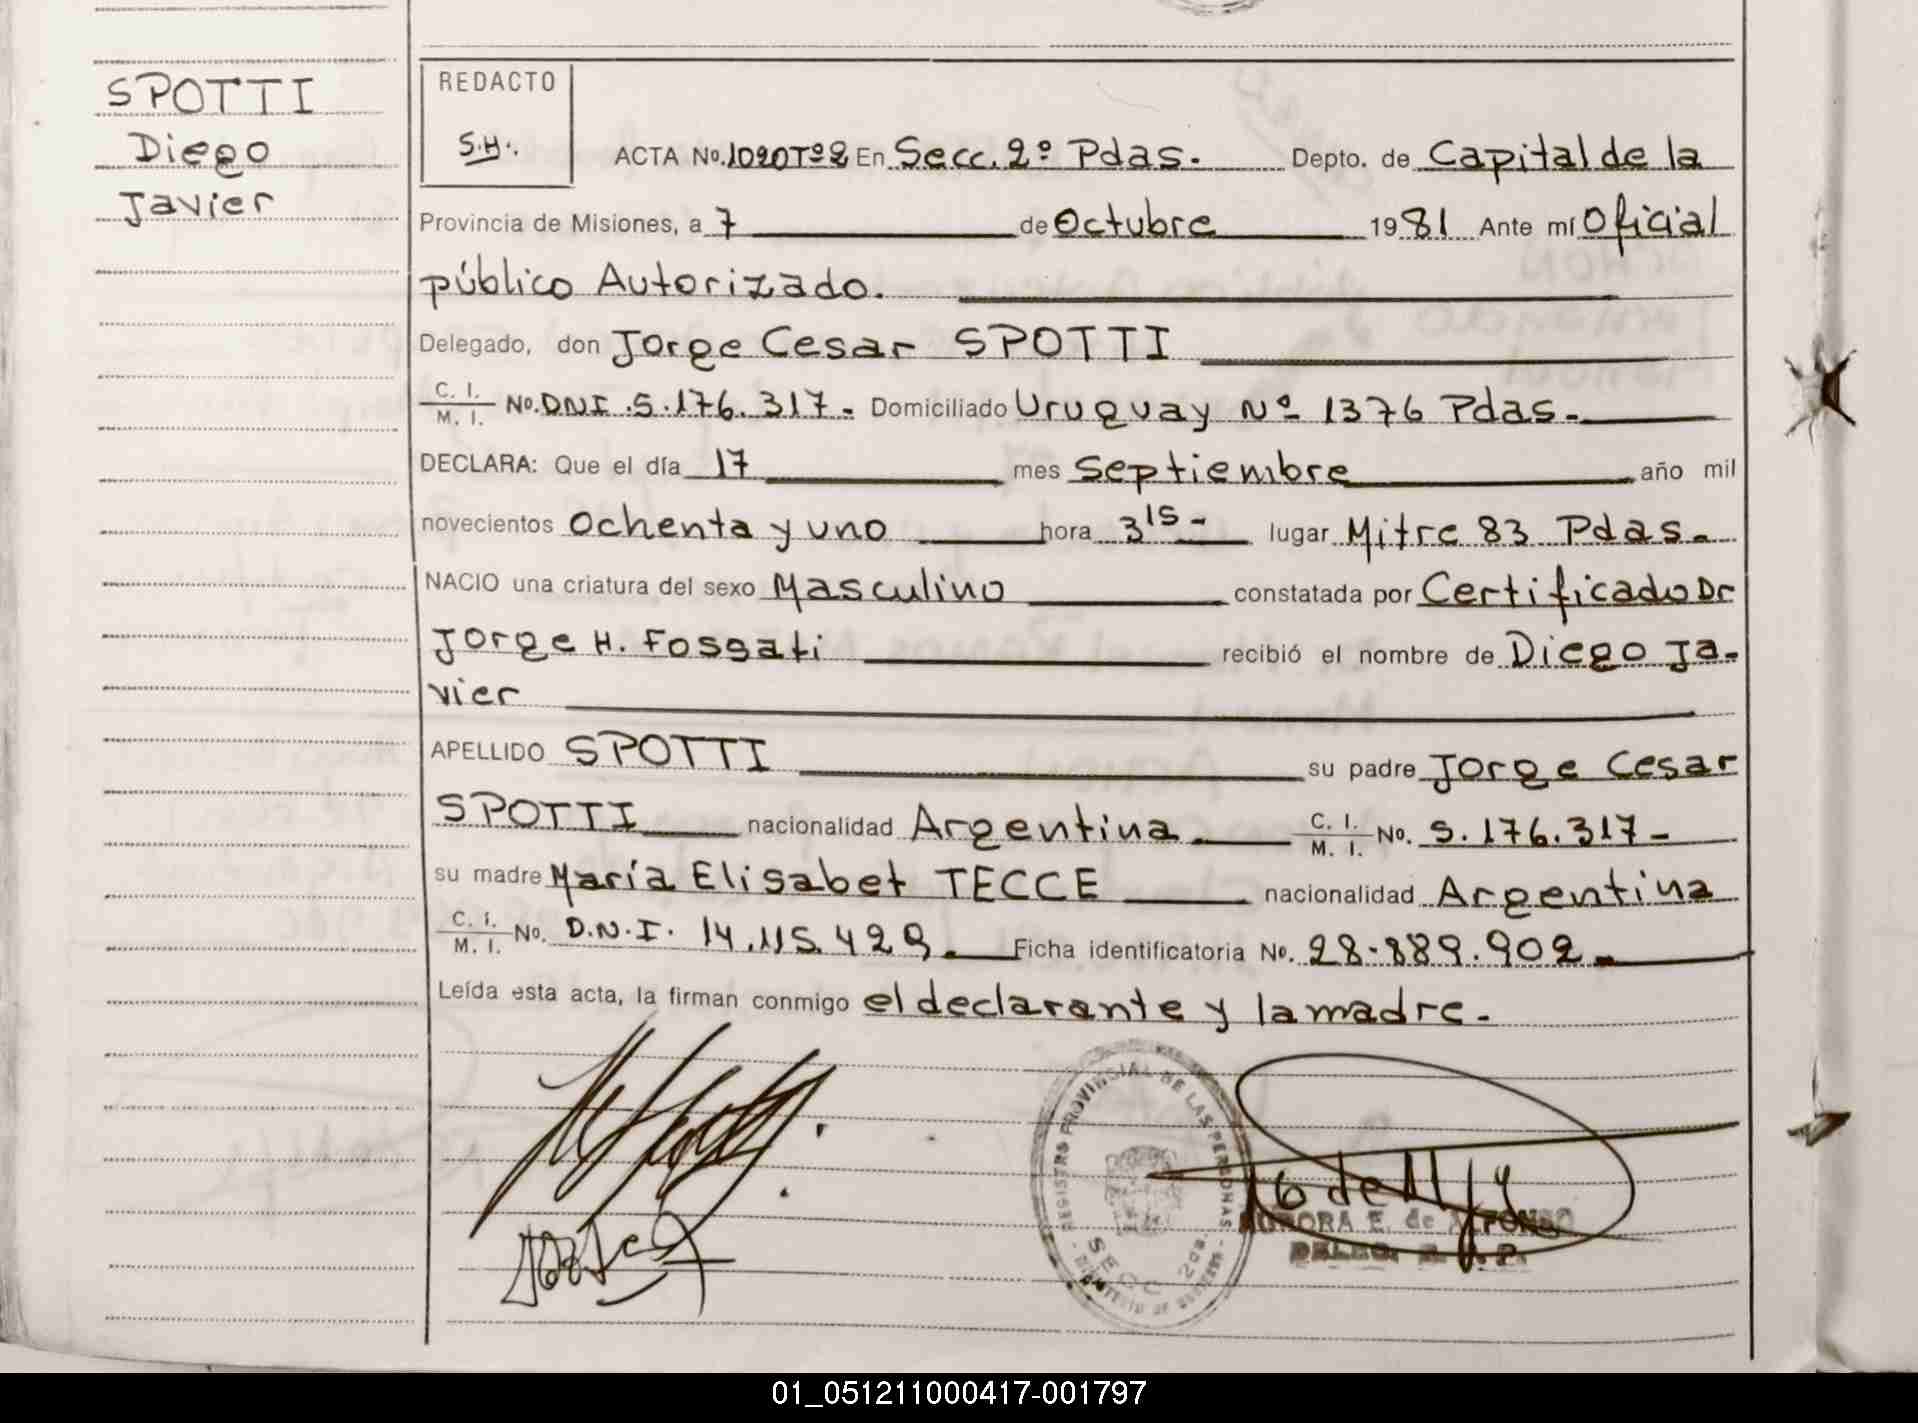 SPOTTI
Diego
Javier
REDACTO
S.H.
ACTA No. 1020 Tº 2 En Secc. 2º Pdas. Depto. de Capital de la
Provincia de Misiones, a 7 de Octubre 1981 Ante mí Oficial
público Autorizado.
Delegado, don Jorge Cesar SPOTTI
C. I. / M. I. No. DNI .5.176.317- Domiciliado Uruguay Nº 1376 Pdas-
DECLARA: Que el día 17 mes Septiembre año mil
novecientos Ochenta y uno hora 3 15- lugar Mitre 83 Pdas-
NACIO una criatura del sexo Masculino constatada por Certificado Dr
Jorge H. Fossati recibió el nombre de Diego Ja-
vier
APELLIDO SPOTTI su padre Jorge Cesar
SPOTTI nacionalidad Argentina C. I. / M. I. No. 5.176.317-
su madre María Elisabet TECCE nacionalidad Argentina
C. I. / M. I. No. D.N.I. 14.115.429. Ficha identificatoria No. 28.889.902-
Leída esta acta, la firman conmigo el declarante y la madre.
REGISTRO PROVINCIAL DE LAS PERSONAS
SECC 2da.
MINISTERIO DE GOBIERNO
AURORA E. de ALFONSO
DELEG. R. P. P.
01_051211000417-001797